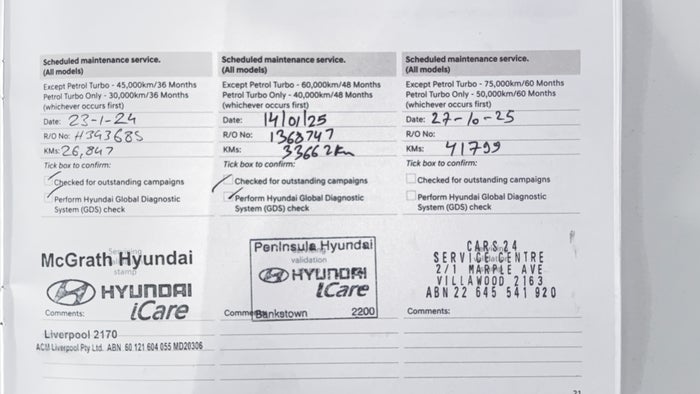 Scheduled maintenance service.
(All models)
Except Petrol Turbo - 45,000km/36 Months
Petrol Turbo Only - 30,000km/36 Months
(whichever occurs first)
Date: 23-1-24
R/O No: H393685
KMs: 26,847
Tick box to confirm:
Checked for outstanding campaigns
Perform Hyundai Global Diagnostic
System (GDS) check
McGrath Hyundai
stamp
HYUNDAI
iCare
Comments:
Liverpool 2170
ACM Liverpool Pty Ltd. ABN 60 121 604 055 MD20306
Scheduled maintenance service.
(All models)
Except Petrol Turbo - 60,000km/48 Months
Petrol Turbo Only - 40,000km/48 Months
(whichever occurs first)
Date: 14/01/25
R/O No: 1368747
KMs: 33662km
Tick box to confirm:
Checked for outstanding campaigns
Perform Hyundai Global Diagnostic
System (GDS) check
Peninsula Hyundai
validation
HYUNDAI
iCare
Bankstown 2200
Scheduled maintenance service.
(All models)
Except Petrol Turbo - 75,000km/60 Months
Petrol Turbo Only - 50,000km/60 Months
(whichever occurs first)
Date: 27-10-25
R/O No:
KMs: 41799
Tick box to confirm:
Checked for outstanding campaigns
Perform Hyundai Global Diagnostic
System (GDS) check
CARS24
SERVICE CENTRE
2/1 MARPLE AVE
VILLAWOOD 2163
ABN 22 645 541 920
Comments: